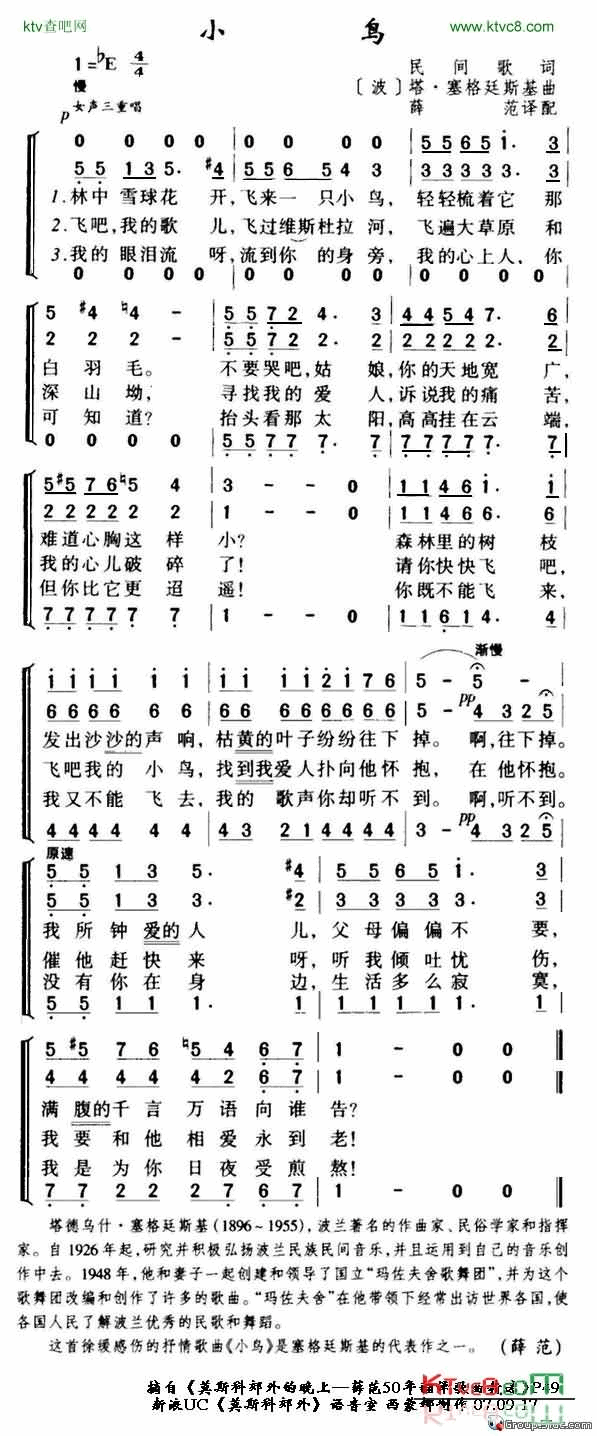 ktv查吧网
www.ktvc8.com
小 鸟
1=♭E 4/4
慢
民间歌词
〔波〕塔·塞格廷斯基曲
薛 范译配
p 女声三重唱
0 0 0 0 | 0 0 0 0 | 5 5 6 5 1. 3
5 5 1 3 5. #4 | 5 5 6 5 4 3 | 3 3 3 3 3. 3
1.林中雪球花 开,飞来一只小鸟, 轻轻梳着它 那
2.飞吧,我的歌 儿,飞过维斯杜拉河, 飞遍大草原 和
3.我的眼泪流 呀,流到你的身旁, 我的心上人,你
0 0 0 0 | 0 0 0 0 | 0 0 0 0
5 #4 ♮4 - | 5 5 7 2 4. 3 | 4 4 5 4 7. 6
2 2 2 - | 5 5 7 2 4. 3 | 2 2 4 4 5. 6
白羽毛。 不要哭吧,姑 娘,你的天地宽 广,
深山坳, 寻找我的爱 人,诉说我的痛 苦,
可知道? 抬头看那太 阳,高高挂在云 端,
0 0 0 0 | 5 5 7 7 7. 7 | 7 7 7 7 7. 7
5 #5 7 6 ♮5 4 | 3 - - 0 | 1 1 4 6 1. 1
2 2 2 2 2 2 | 1 - - 0 | 1 1 4 4 6. 6
难道心胸这样 小? 森林里的树 枝
我的心儿破碎 了! 请你快快飞 吧,
但你比它更迢 遥! 你既不能飞 来,
7 7 7 7 7 7 | 1 - - 0 | 1 1 6 1 4. 4
渐慢
1 1 1 1 1 1 | 1 1 1 2 1 7 6 | 5 - 5
6 6 6 6 6 6 | 6 6 6 6 6 6 6 | 5 - pp 4 3 2 5
发出沙沙的声响,枯黄的叶子纷纷往下 掉。啊,往下掉。
飞吧我的 小鸟,找到我爱人扑向他怀 抱,在他怀抱。
我又不能 飞去,我的 歌声你却听不 到。啊,听不到。
4 4 4 4 4 4 | 4 3 2 1 4 4 4 | 5 - pp 4 3 2 5
原速
5 5 1 3 5. #4 | 5 5 6 5 1. 3
5 5 1 3 3. #2 | 3 3 3 3 3. 3
我所钟爱的人 儿,父母偏偏不 要,
催他赶快来 呀,听我倾吐忧 伤,
没有你在身 边,生活多么寂 寞,
5 5 1 1 1. 1 | 1 1 1 1 1. 1
5 #5 7 6 ♮5 4 6 7 | 1 - 0 0 ‖
4 4 4 4 4 2 6 7 | 1 - 0 0 ‖
满腹的千言万语向谁告?
我要和他相爱永到老!
我是为你日夜受煎熬!
7 7 2 2 2 7 6 7 | 1 - 0 0 ‖
塔德乌什·塞格廷斯基(1896~1955),波兰著名的作曲家、民俗学家和指挥
家。自1926年起,研究并积极弘扬波兰民族民间音乐,并且运用到自己的音乐创
作中去。1948年,他和妻子一起创建和领导了国立“玛佐夫舍歌舞团”,并为这个
歌舞团改编和创作了许多的歌曲。“玛佐夫舍”在他带领下经常出访世界各国,使
各国人民了解波兰优秀的民歌和舞蹈。
这首徐缓感伤的抒情歌曲《小鸟》是塞格廷斯基的代表作之一。 (薛 范)
摘自《莫斯科郊外的晚上—薛范50年翻译歌曲 P49
新浪UC《莫斯科郊外》语音室 西蒙 制作 07.09.17
KTvc8.com
GroupStar.com